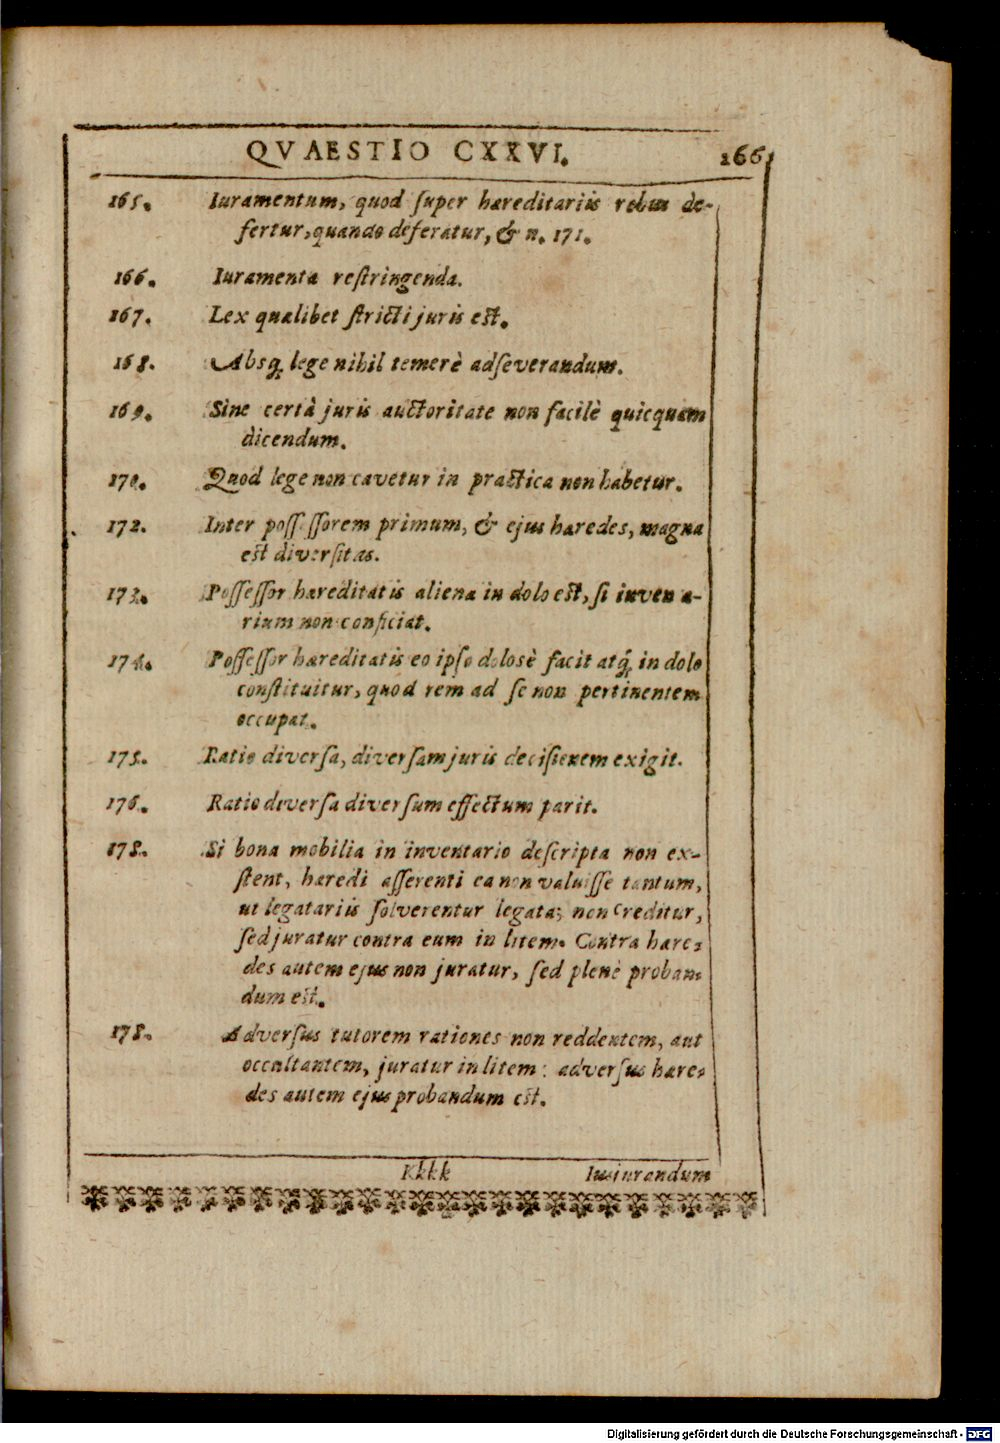 QVAESTIO CXXVI. 166
165. Iuramentum, quod ſuper hæreditariis rebus de-
fertur, quando deferatur, & n. 171.
166. Iuramenta reſtringenda.
167. Lex quælibet ſtricti juris est.
168. Absq; lege nihil temerè adſeverandum.
169. Sine certâ juris auctoritate non facilè quicquam
dicendum.
170. Quod lege non cavetur in practica non habetur.
172. Inter poſſeſſorem primum, & ejus hæredes, magna
est diverſitas.
173. Poſſeſſor hæreditatis aliena in dolo est, ſi inven a-
rium non conficiat.
174. Poſſeſſor hæreditatis eo ipſo dolosè facit atq; in dolo
conſtituitur, quod rem ad ſe non pertinentem
occupat.
175. Ratio diverſa, diverſam juris deciſionem exigit.
176. Ratio diverſa diverſum effectum parit.
178. Si bona mobilia in inventario deſcripta non ex-
ſtent, hæredi aſſerenti ea non valuiſſe tantum,
ut legatariis ſolverentur legata; non creditur,
ſed juratur contra eum in litem. Contra hære-
des autem ejus non juratur, ſed plenè proban-
dum est.
178. Adverſus tutorem rationes non reddentem, aut
occultantem, juratur in litem: adverſus hære-
des autem ejus probandum est.
Kkkk Iusjurandum
Digitalisierung gefördert durch die Deutsche Forschungsgemeinschaft - DFG